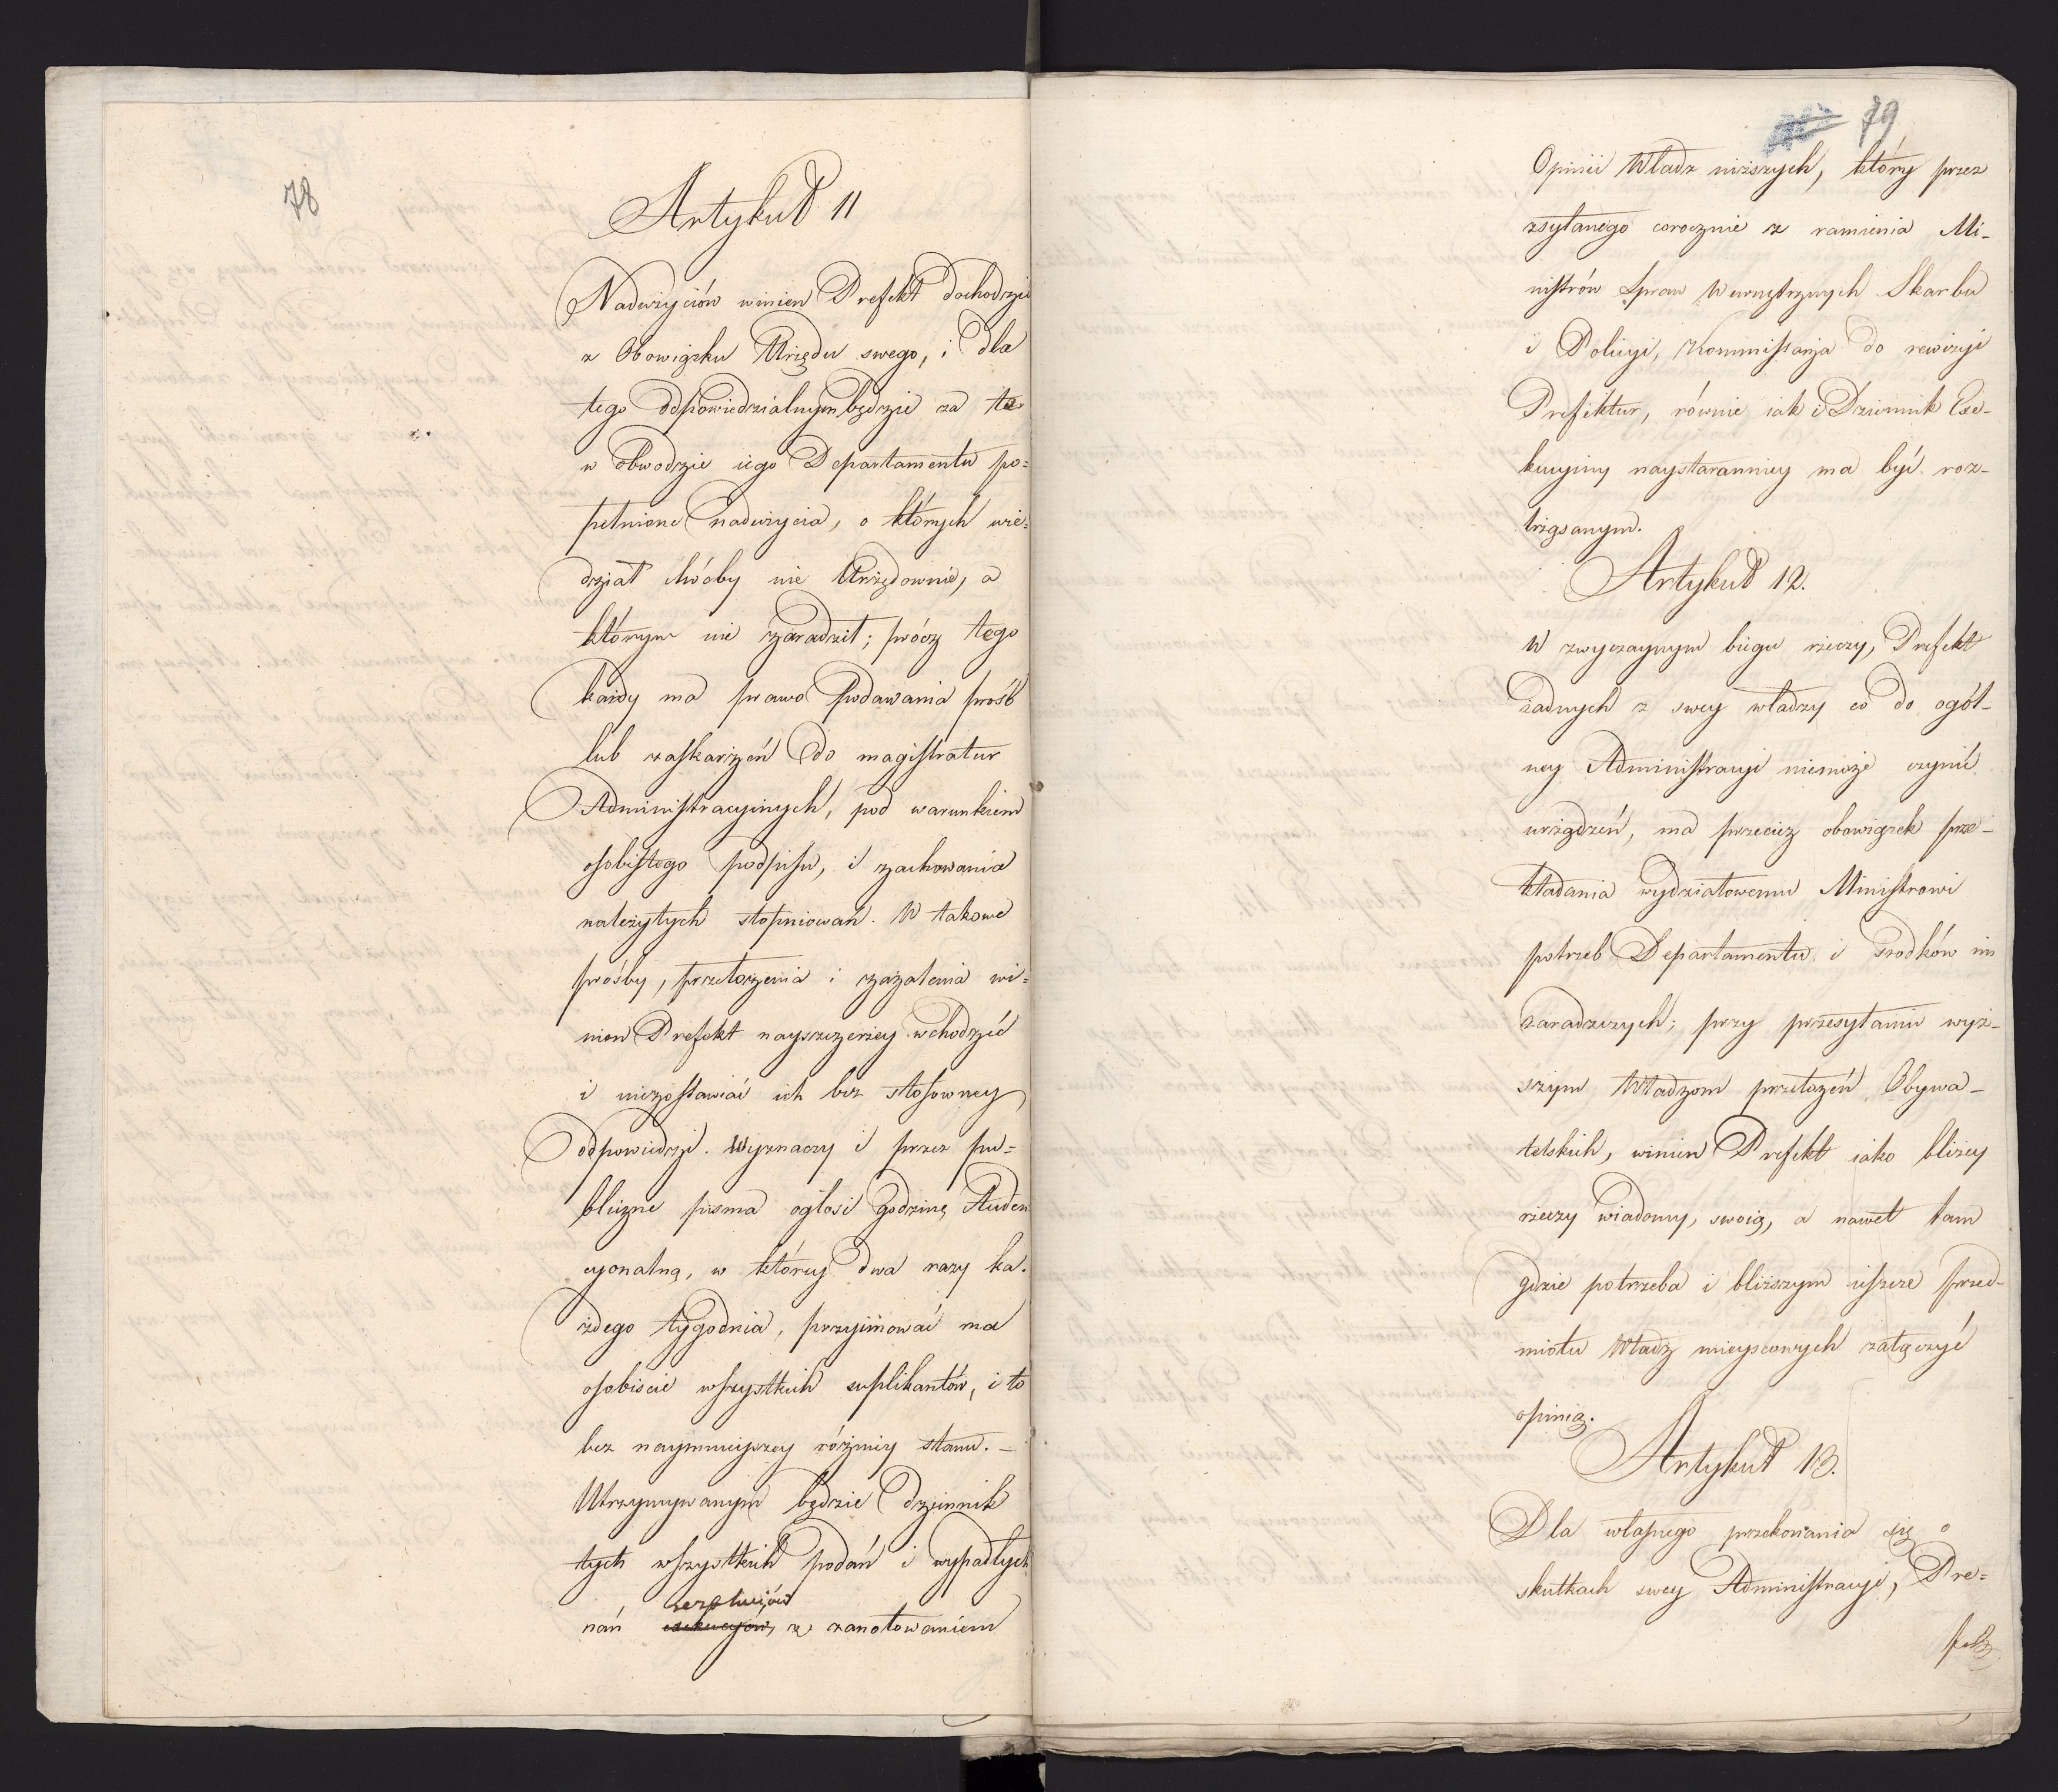 78
Artykuł 11
Nadużyciów winien Prefekt dochodzić
z Obowiązku Urzędu swego, i dla
tego odpowiedzialnym będzie za te
w obwodzie iego Departamentu po=
pełnione nadużycia, o których wie=
dział chóćby nie Urzędownie, a
którym nie zaradził; prócz tego
każdy ma prawo podawania prośb
lub zaskarżeń do magistratur
Administracyinych, pod warunkiem
osobistego podpisu, i zachowania
należytych stopniowań. W takowe
prośby, przełożenia i zażalenia wi=
nien Prefekt nayszczerzey wchodzić
i niezostawiać ich bez stosowney
odpowiedzi. Wyznaczy i przez pu=
bliczne pisma ogłosi godzinę Auden
cyonalną, w którey dwa razy ka.
żdego tygodnia, przyimować ma
osobiscie wszystkich suplikantów, i to
bez naymnieyszey różnicy stanu. —
Utrzymywanym będzie dziennik
tych wszystkich podań i wypadłych
rezolucjów
nań exekucyów, z zanotowaniem
79
Opinii Władz niższych, który przez
zsyłanego corocznie z ramienia Mi-
nistrów Spraw Wewnętrznych Skarbu
i Policyi, Kommissarza do rewizyi
Prefektur, równie iak i Dziennik Exe-
kucyiny naystaranniey ma być roz-
trząsanym.
Artykuł 12.
W zwyczaynym biegu rzeczy, Prefekt
żadnych z swey władzy co do ogól-
ney Administracyi niemoże czynić
urządzeń, ma przecież obowiązek prze-
kładania wydziałowemu Ministrowi
potrzeb Departamentu i środków im
zaradczych; przy przesyłaniu wyż-
szym Władzom przełożeń Obywa-
telskich, winien Prefekt iako bliżey
rzeczy wiadomy, swoią, a nawet tam
gdzie potrzeba i bliższym ieszcze przed-
miotu Władz mieyscowych załączyć
opinią.
Artykuł 13.
Dla własnego przekonania się o
skutkach swey Administracyi, Pre=
fekt